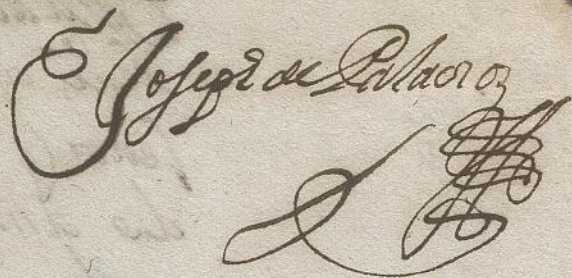 Joseph de Palacioz